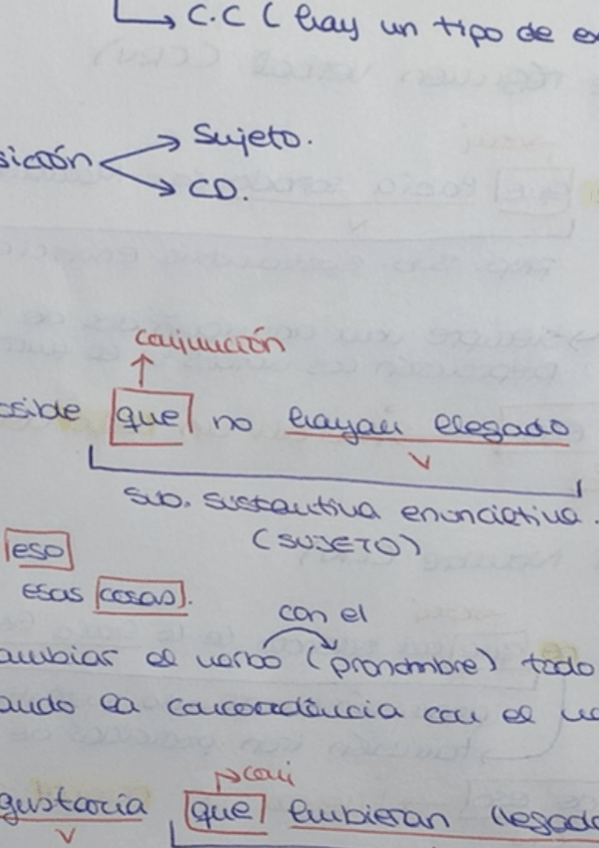 C.C ( hay un tipo de
sición → Sujeto.
→ CD.
conjunción
osible que no hayan llegado
V
sub. sustantiva enunciativa.
(SUJETO)
eso
esas cosas.
con el
ambiar el verbo (pronombre) todo
ando la concordancia con el
conj
gustaría que hubieran llegado
V